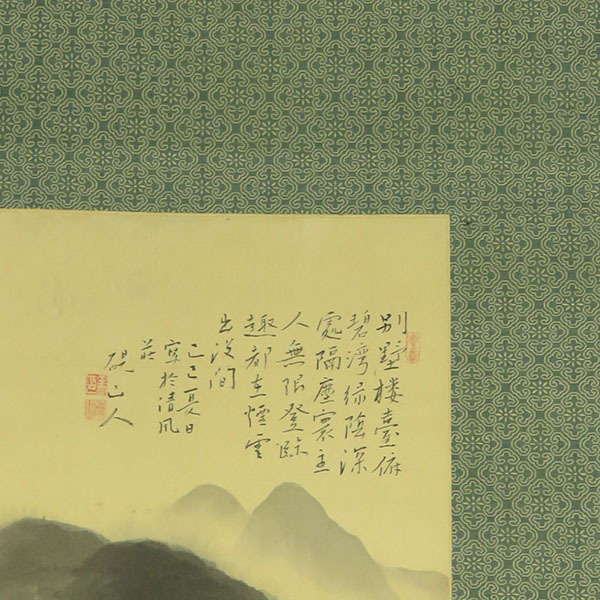 別墅樓臺俯
碧灣緑陰深
處隔塵寰主
人無限登臨
趣都在煙雲
出沒間
己巳夏日
寫於清風
莊
硯山人